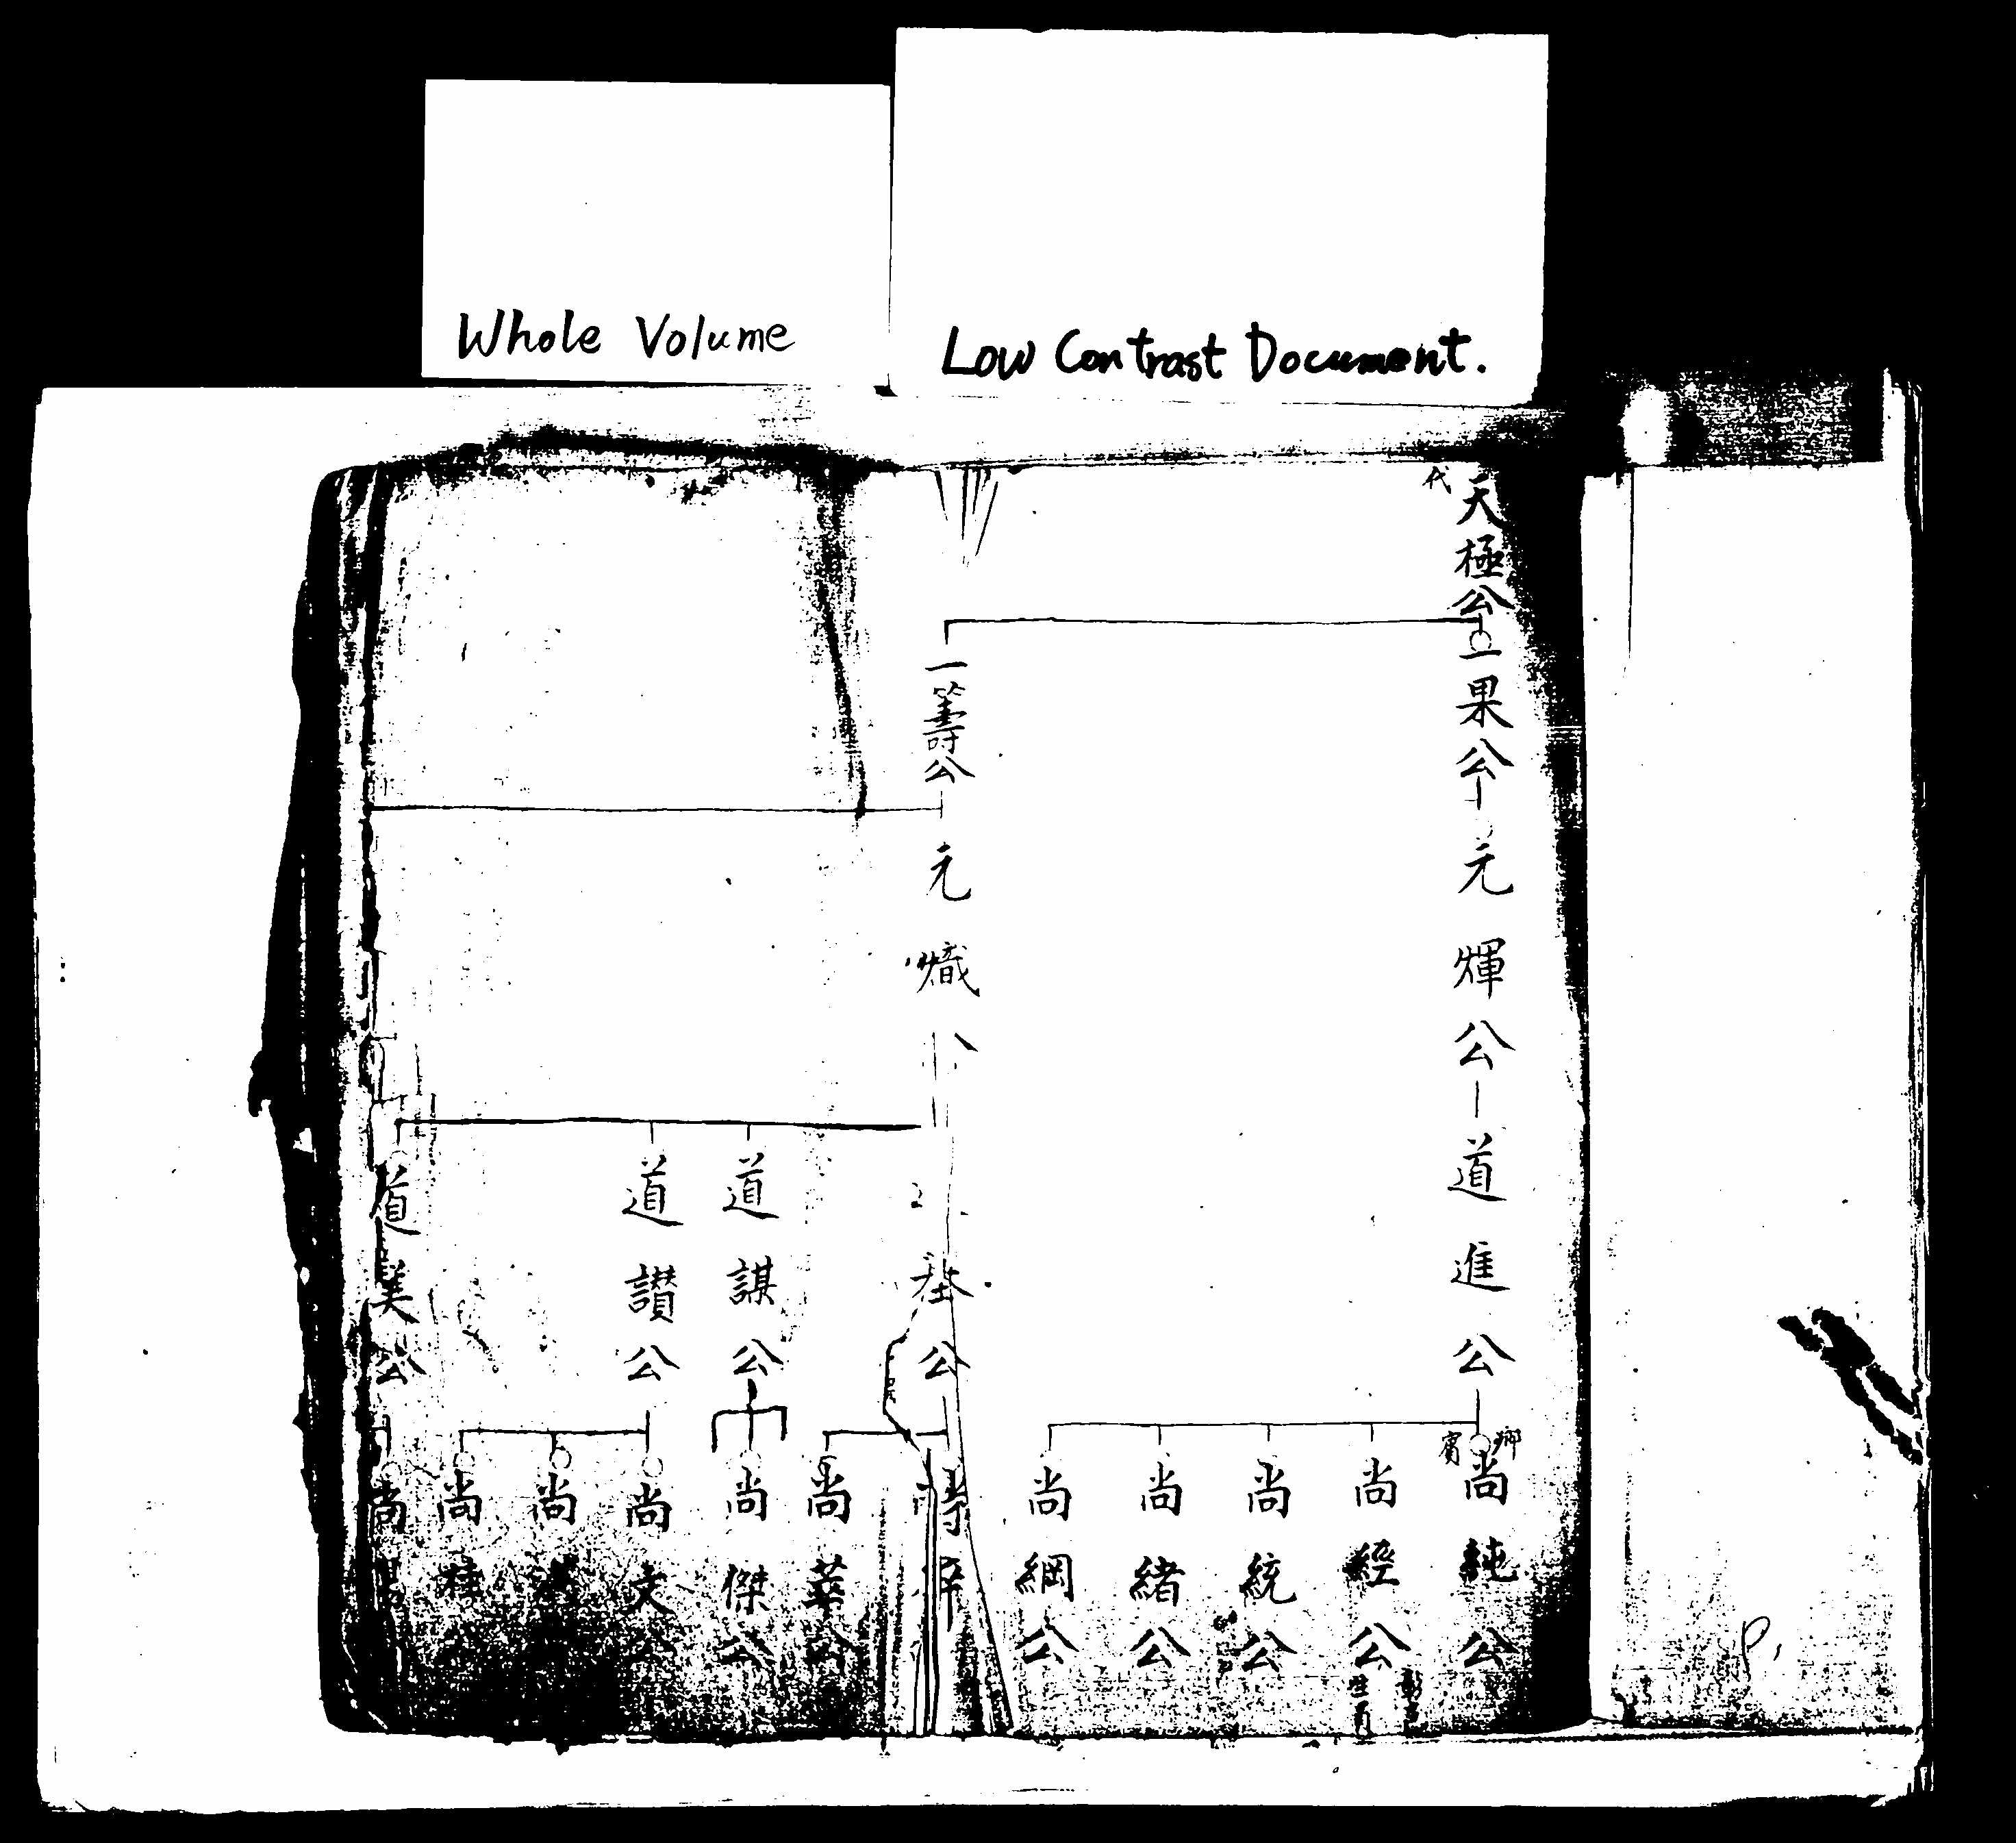 Whole Volume
Low Contrast Document.
代
天極公
一果公
元輝公
道進公
鄉賓
尚純公
尚經公
尚統公
尚緒公
尚綱公
一籌公
元熾公
公
尚華公
道謀公
尚傑公
道讚公
尚文公
尚
尚
道美公
尚
P.